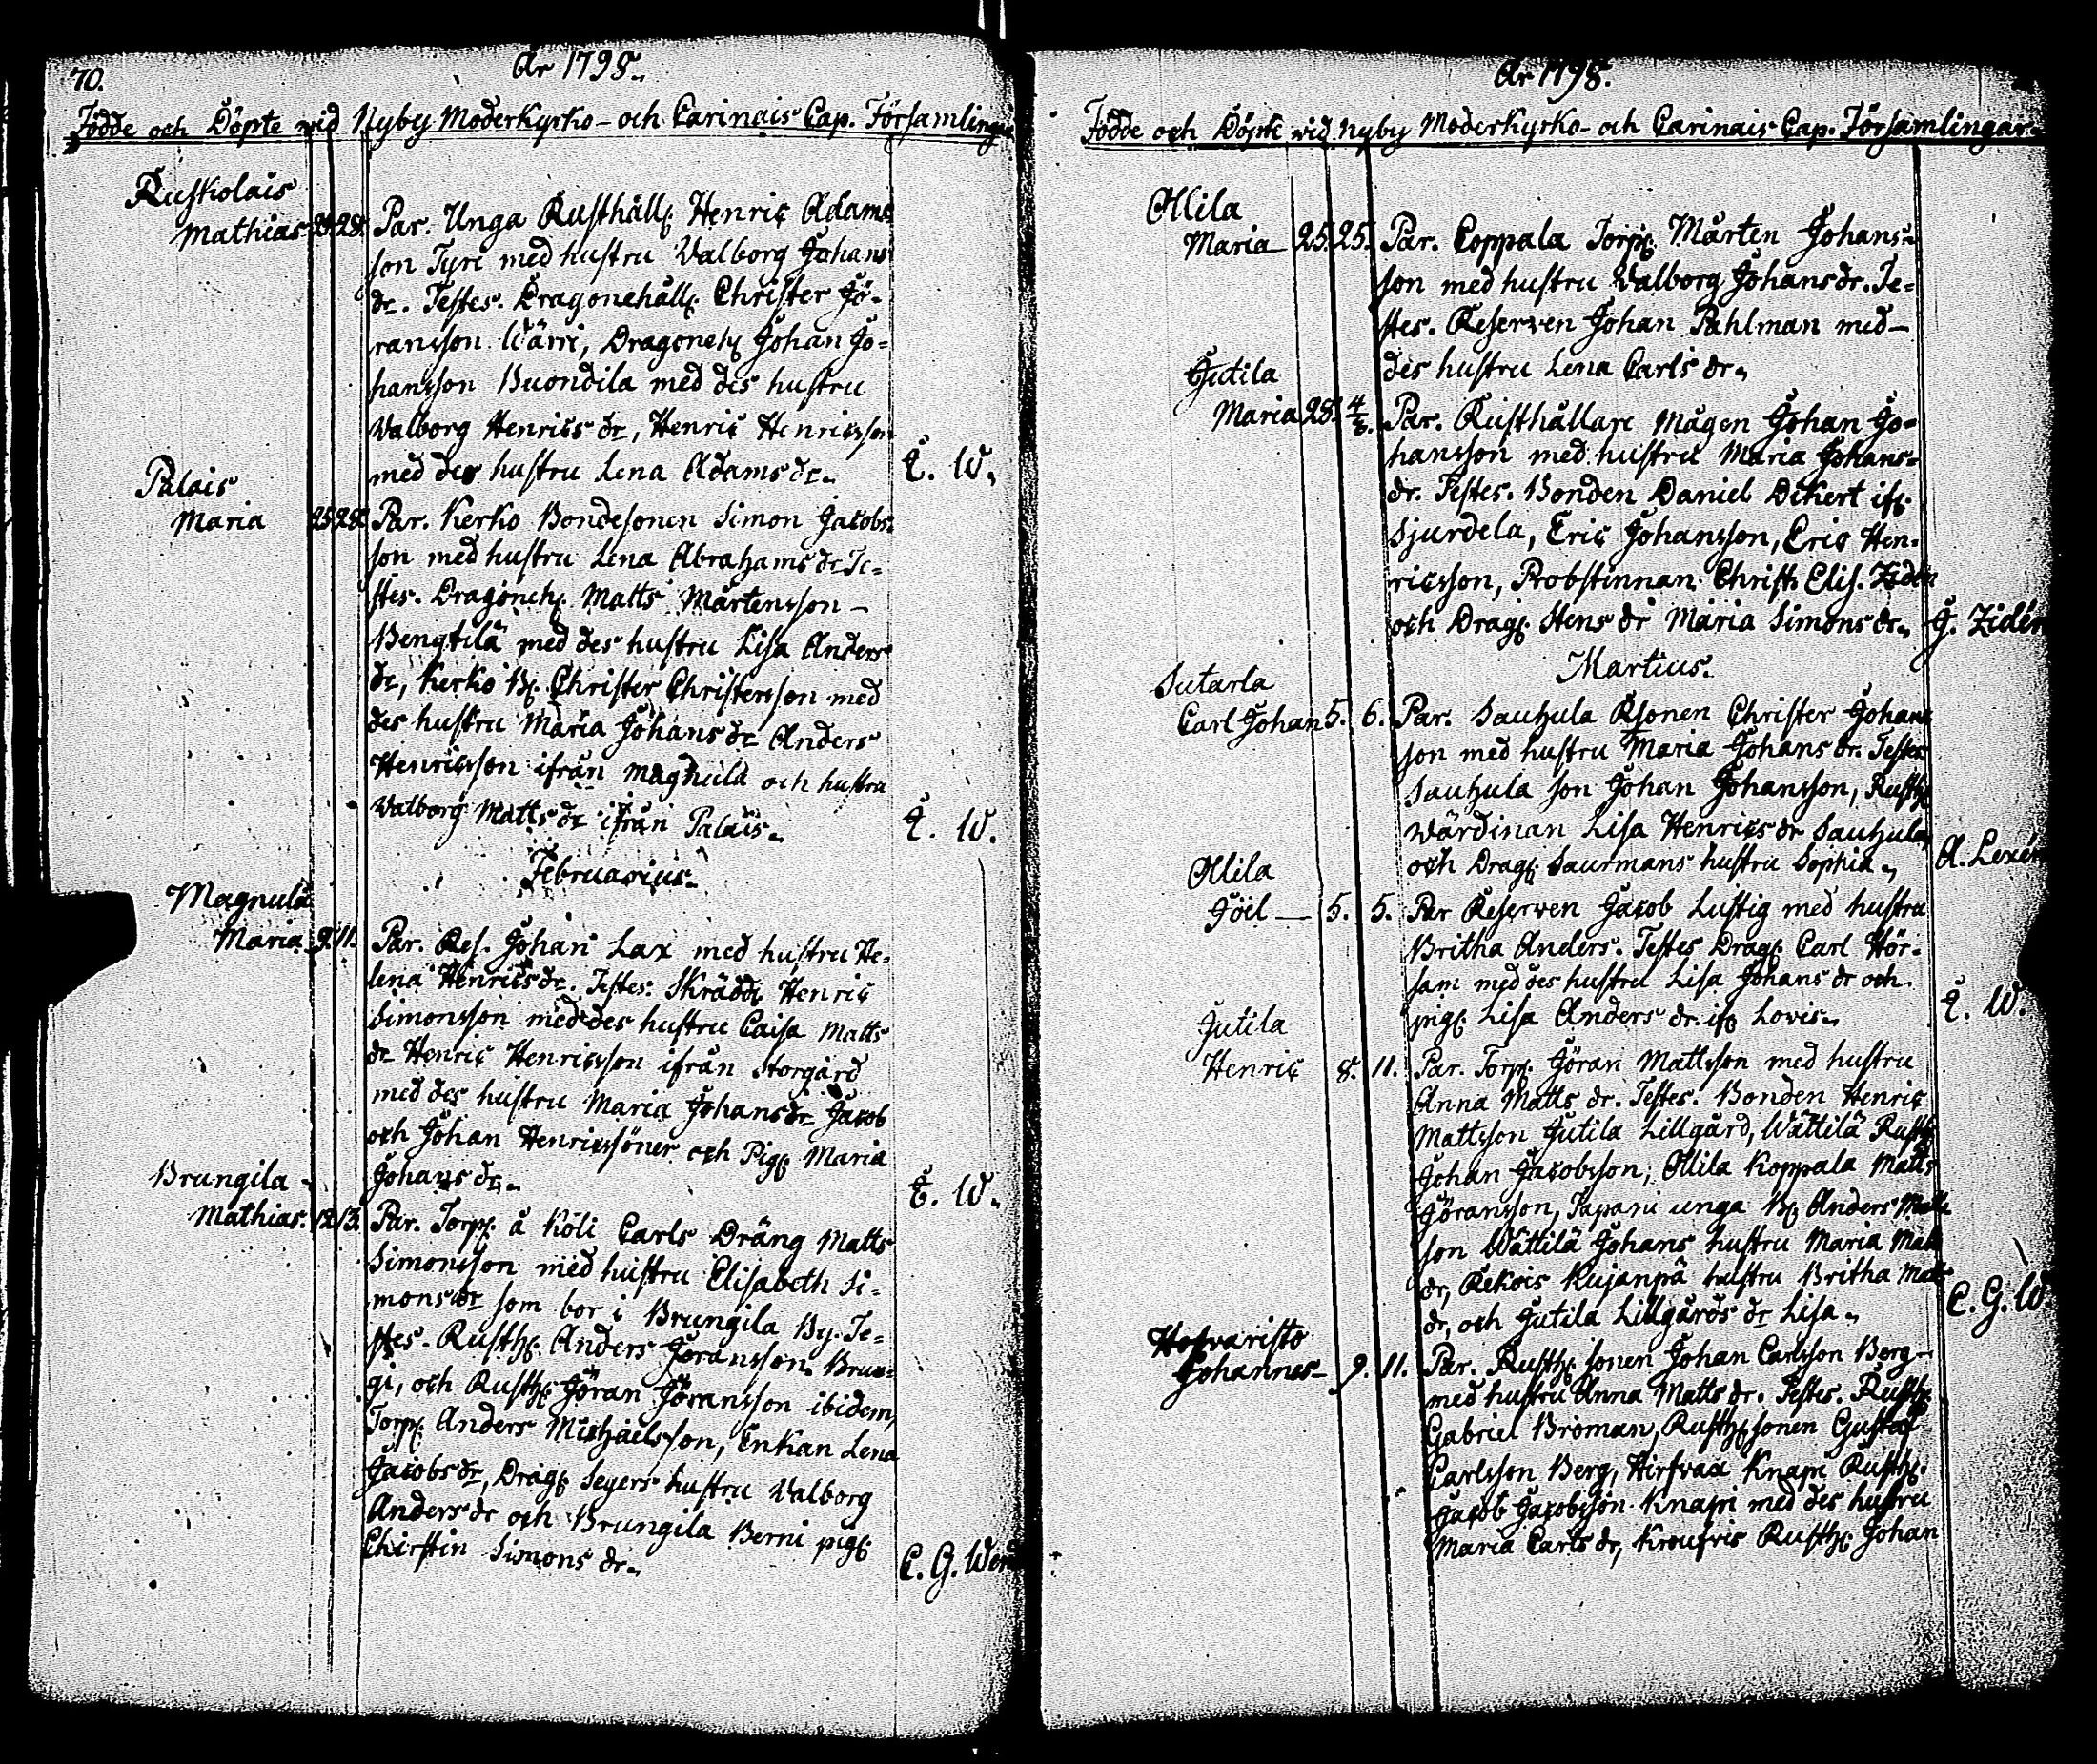 70.
År 1798.
Födde och Döpte wid Nyby Moderkyrko- och Carinais Cap. Församlingar
Ruskolais
Mathias 28. Par. Unga Rusthåll. Henric Adams
son Tyri med hustru Valborg Johans
dr. Testes. Dragonehåll. Christer Jö-
ransson Wärri, Dragoneh. Johan Jo-
hansson Buondila med des hustru
Valborg Henrics dr, Henric Henricsson
med des hustru Lena Adams dr. W.
Palais
Maria 25. 28. Par. Kerko Bondesonen Simon Jacobs
son med hustru Lena Abrahams dr Te-
stes. Dragoneh. Matts Mårtensson -
Bengtilä med des hustru Lisa Anders
dr, Kerko B. Christer Christersson med
des hustru Maria Johans dr Anders
Henricsson ifrån Magnula och hustru
Valborg Matts dr ifrån Palais. W.
Februarius.
Magnula
Maria. 9. 11. Par. Res. Johan Lax med hustru He-
lena Henrics dr. Testes. Skrädd. Henric
Simonsson med des hustru Caisa Matts
dr Henric Henricsson ifrån Storgård
med des hustru Maria Johans dr Jacob
och Johan Henricssöner och Pig. Maria
Johans dr. W.
Brungila
Mathias. 12. 13. Par. Torp. å Köli Carls Dräng Matts
Simonsson med hustru Elisabeth Si-
mons dr som bor i Brungila By. Te-
stes. Rusth. Anders Göransson Brun-
gi, och Rusth. Göran Göransson ibidem,
Torp. Anders Michaelsson, Enkan Lena
Jacobs dr, Drag. Segers hustru Valborg
Anders dr och Brungila Berni pig.
Chirstin Simons dr. C. G. W
År 1798.
Födde och Döpte wid Nyby Moderkyrko- och Carinais Cap. Församlingar.
Ollila
Maria - 25. 25. Par. Coppala Torp. Mårten Johans-
son med hustru Valborg Johans dr. Te-
stes. Reserven Johan Pahlman med -
des hustru Lena Carls dr.
Jutila
Maria 28. Par. Rusthållare Mågen Johan Jo-
hansson med hustru Maria Johans-
dr. Testes. Bonden Daniel Dikert if.
Sjurdela, Eric Johansson, Eric Hen-
ricsson, Probstinnan Christ. Elis. Zidén
och Drag. Hens dr Maria Simons dr. J. Zidén
Martius.
Sutarla
Carl Johan 5. 6. Par. Sauhula Rsonen Christer Johans
son med hustru Maria Johans dr. Testes
Sauhula son Johan Johansson, Rusth.
Wärdinan Lisa Henrics dr Sauhula,
och Drag. Saurmans hustru Sophia. A. Lexén
Ollila
Jöel - 5. 5. Par Reserven Jacob Lustig med hustru
Britha Anders. Testes Drag. Carl Hör-
sam med des hustru Lisa Johans dr och
pig. Lisa Anders dr. if. Lovis. W.
Jutila
Henric 8. 11. Par. Torp. Jöran Mattsson med hustru
Anna Matts dr. Testes. Bonden Henric
Mattsson Jutila Lillgård, Wättilä Rusth.
Johan Jacobsson, Ollila Koppala Matts
Göransson, Tapani unga B. Anders Matts
son Wättilä Johans hustru Maria Matts
dr, Rekois Kujanpä hustru Britha Matts
dr, och Jutila Lillgårds dr Lisa. C. G. W.
Hofvaristo
Johannes - 9. 11. Par. Rusth. sonen Johan Carlsson Berg -
med hustru Anna Matts dr. Testes. Rusth.
Gabriel Broman, Rusth. sonen Gustaf
Carlsson Berg, Knapi Rusth.
Jacob Jacobsson Knapi med des hustru
Maria Carls dr, Rusth. Johan